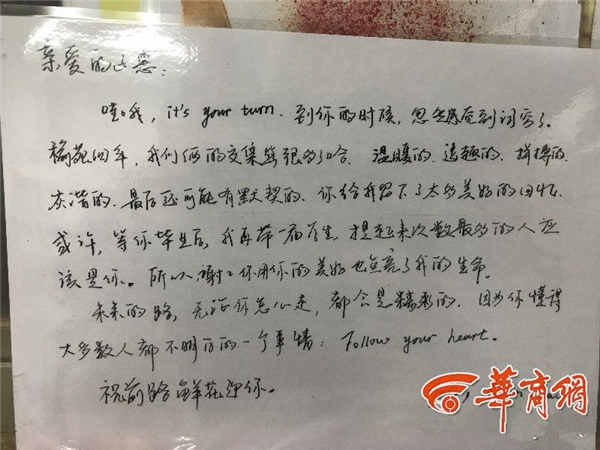 亲爱的
it's your turn. 到你的时候，忽然感到词穷了。
四年，我们俩的交集算很多了哈. 温暖的. 逗趣的.
诙谐的. 最后还可能有默契的. 你给我留下了太多美好的回忆.
或许，等你毕业后，我再带一届学生，想起来次数最多的人应
该是你。所以谢谢你用你的美好也点亮了我的生命。
未来的路，无论你怎么走，都会是精彩的. 因为你懂得
大多数人都不明白的一个事情：Follow your heart.
祝前路鲜花迎你。
華商網